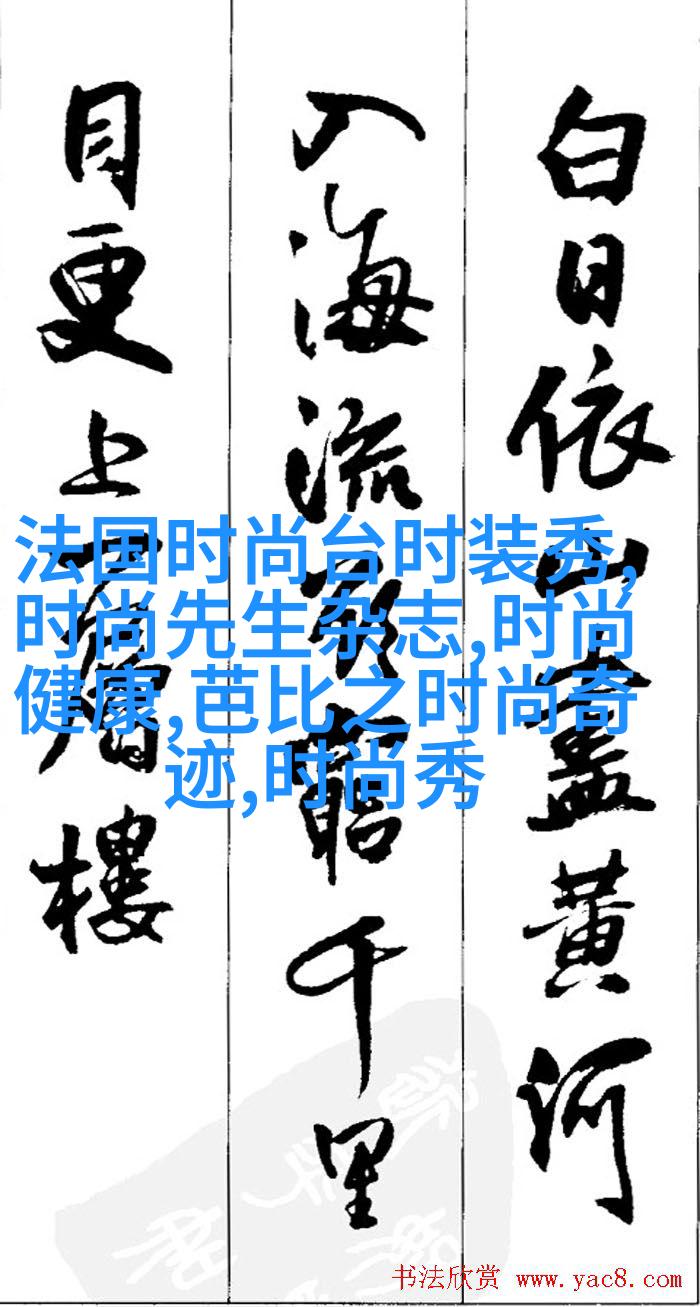 白日依山盡黄河
入海流欲窮千里
目更上一層樓
法国时尚台时装秀,
时尚先生杂志,时尚
健康,芭比之时尚奇
迹,时尚秀
书法欣赏 www.yac8.com